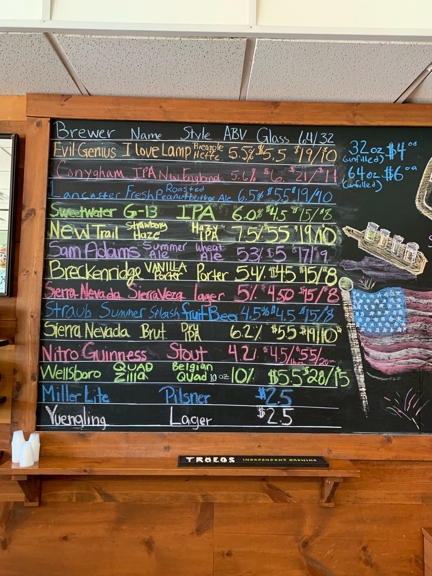 Brewer Name Style ABV Glass 64/32
Evil Genius I love Lamp Pineapple Hefe 5.5% $5.5 $19/10
Conyngham IPA New England 5.6% $6 $21/$11
Lancaster Fresh Roasted Peanut Butter Ale 6.5% $5.5 $19/10
Sweetwater G-13 IPA 6.0% $4.5 $15/$8
New Trail Strawberry Haze IPA 7.5/5.5 $19/10
Sam Adams Summer Ale Wheat Ale 5.3/$5 $17/$9
Breckenridge Vanilla Porter Porter 5.4/$4.5 $15/$8
Sierra Nevada Sierra Veza lager 5% 4.50 $15/$8
Straub Summer Splash fruit Beer 4.5% $4.5 $15/$8
Sierra Nevada Brut Dry IPA 6.2% $5.5 $19/10
Nitro Guinness Stout 4.2%
Wellsboro Quad Zilla Belgian Quad 10 oz 10% $5.5 $28/15
Miller Lite Pilsner $2.5
Yuengling Lager $2.5
32 oz $4
(unfilled)
64 oz $6 ea
(unfilled)
TRÖEGS INDEPENDENT BREWING